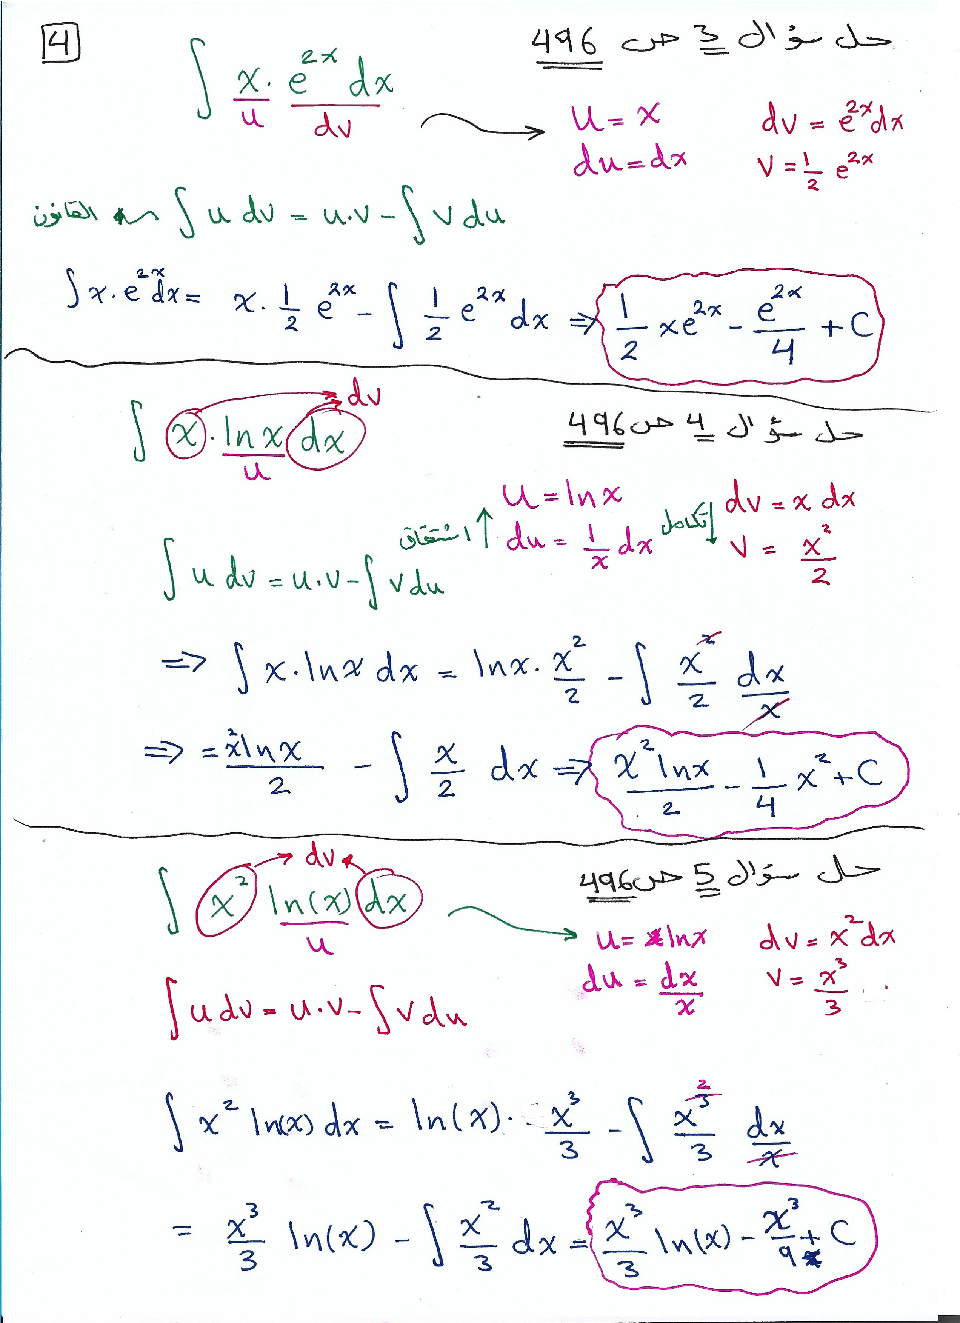 4
حل سؤال 3 ص 496
∫ x. e^{2x} dx
u dv
u = x dv = e^{2x}dx
du = dx v = 1/2 e^{2x}
القانون ∫ u dv = u.v - ∫ v du
∫ x. e^{2x} dx = x. 1/2 e^{2x} - ∫ 1/2 e^{2x} dx ⇒ 1/2 xe^{2x} - e^{2x}/4 + C
حل سؤال 4 ص 496
dv
∫ x. ln x dx
u
u = ln x dv = x dx
اشتقاق du = 1/x dx تكامل v = x^2/2
∫ u dv = u.v - ∫ v du
⇒ ∫ x. ln x dx = ln x. x^2/2 - ∫ x^2/2 dx/x
⇒ = x^2 ln x/2 - ∫ x/2 dx ⇒ x^2 ln x/2 - 1/4 x^2 + C
حل سؤال 5 ص 496
dv
∫ x^2 ln(x) dx
u
u = ln x dv = x^2 dx
du = dx/x v = x^3/3
∫ u dv = u.v - ∫ v du
∫ x^2 ln(x) dx = ln(x). x^3/3 - ∫ x^3/3 dx/x
2
= x^3/3 ln(x) - ∫ x^2/3 dx = x^3/3 ln(x) - x^3/9 + C